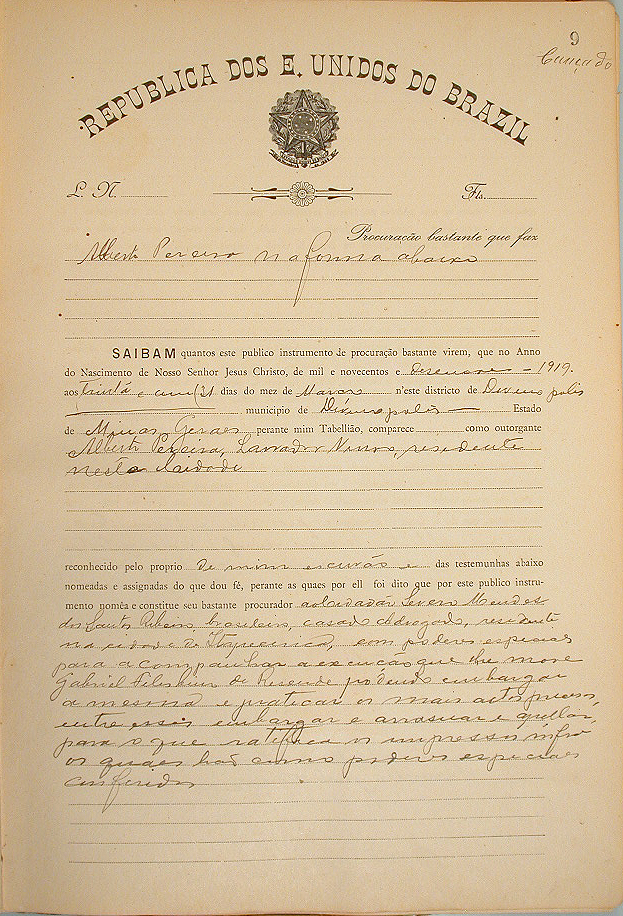 9
Cançado
REPUBLICA DOS E. UNIDOS DO BRAZIL
L. N.
Fls.
Procuração bastante que faz
Alberto Pereira na forma abaixo
SAIBAM quantos este publico instrumento de procuração bastante virem, que no Anno
do Nascimento de Nosso Senhor Jesus Christo, de mil e novecentos e desenove - 1919.
aos trinta e um (31 dias do mez de Março n'este districto de Divinopolis
municipio de Divinopolis Estado
de Minas Geraes perante mim Tabellião, comparece como outorgante
Alberto Pereira, Lavrador, residente
nesta Cidade
reconhecido pelo proprio de mim escrivão e das testemunhas abaixo
nomeadas e assignadas do que dou fé, perante as quaes por ell foi dito que por este publico instru-
mento nomêa e constitue seu bastante procurador ao Cidadão Severo Mendes
dos Santos Ribeiro, brasileiro, casado, advogado, residente
na cidade de Itapecerica, com poderes especiaes
para acompanhar a execução que lhe move
Gabriel de Resende podendo embargar
a mesma e praticar os mais actos
entre esses embargar e arrasoar e apellar,
para o que ratifica os impressos infra
os quaes hão como poderes especiaes
conferidos